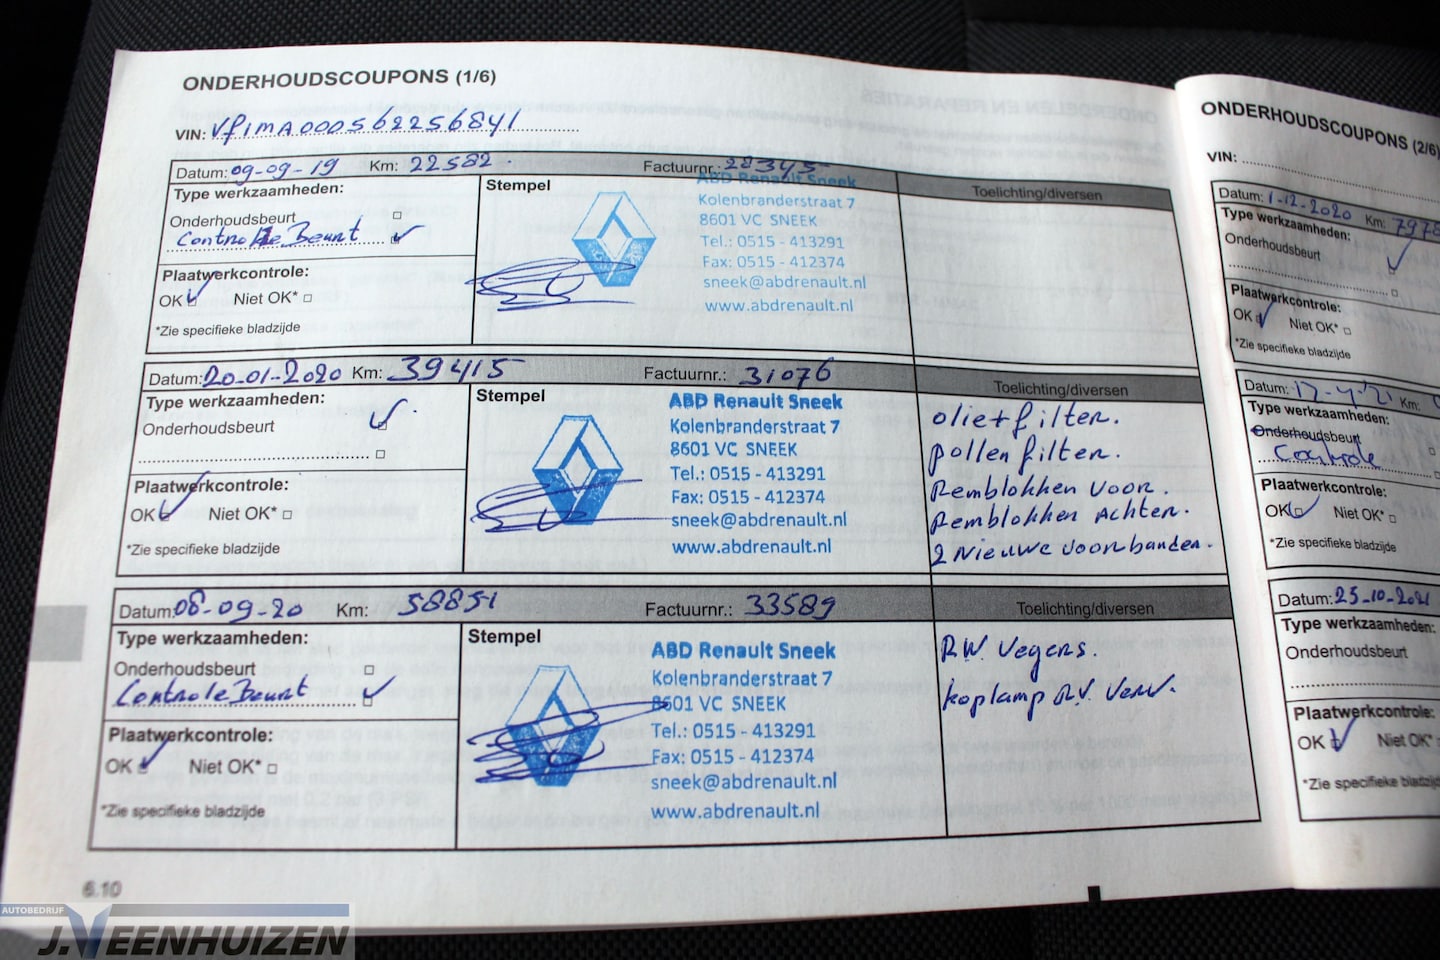 ONDERHOUDSCOUPONS (1/6)
VIN: VF1MA000562256841
Datum: 09-09-19 Km: 22582. Factuurnr.: 28345
Type werkzaamheden:
Onderhoudsbeurt
Controle Beurt
Plaatwerkcontrole:
OK Niet OK*
*Zie specifieke bladzijde
Stempel
ABD Renault Sneek
Kolenbranderstraat 7
8601 VC SNEEK
Tel.: 0515 - 413291
Fax: 0515 - 412374
sneek@abdrenault.nl
www.abdrenault.nl
Toelichting/diversen
Datum: 20-01-2020 Km: 39415 Factuurnr.: 31076
Type werkzaamheden:
Onderhoudsbeurt
Plaatwerkcontrole:
OK Niet OK*
*Zie specifieke bladzijde
Stempel
ABD Renault Sneek
Kolenbranderstraat 7
8601 VC SNEEK
Tel.: 0515 - 413291
Fax: 0515 - 412374
sneek@abdrenault.nl
www.abdrenault.nl
Toelichting/diversen
olie+filter.
pollen filter.
Remblokken voor.
Remblokken Achter.
2 Nieuwe voorbanden.
Datum: 08-09-20 Km: 58851 Factuurnr.: 33589
Type werkzaamheden:
Onderhoudsbeurt
Controle Beurt
Plaatwerkcontrole:
OK Niet OK*
*Zie specifieke bladzijde
Stempel
ABD Renault Sneek
Kolenbranderstraat 7
8601 VC SNEEK
Tel.: 0515 - 413291
Fax: 0515 - 412374
sneek@abdrenault.nl
www.abdrenault.nl
Toelichting/diversen
RW Vegers.
koplamp R.V. Verv.
6.10
ONDERHOUDSCOUPONS (2/6)
VIN:
Datum: 1-12-2020 Km: 7978
Type werkzaamheden:
Onderhoudsbeurt
Plaatwerkcontrole:
OK Niet OK*
*Zie specifieke bladzijde
Datum: 12-4-'21 Km:
Type werkzaamheden:
Onderhoudsbeurt
Controle
Plaatwerkcontrole:
OK Niet OK*
*Zie specifieke bladzijde
Datum: 25-10-2021
Type werkzaamheden:
Onderhoudsbeurt
Plaatwerkcontrole:
OK Niet OK*
*Zie specifieke bladzijde
AUTOBEDRIJF
J. VEENHUIZEN